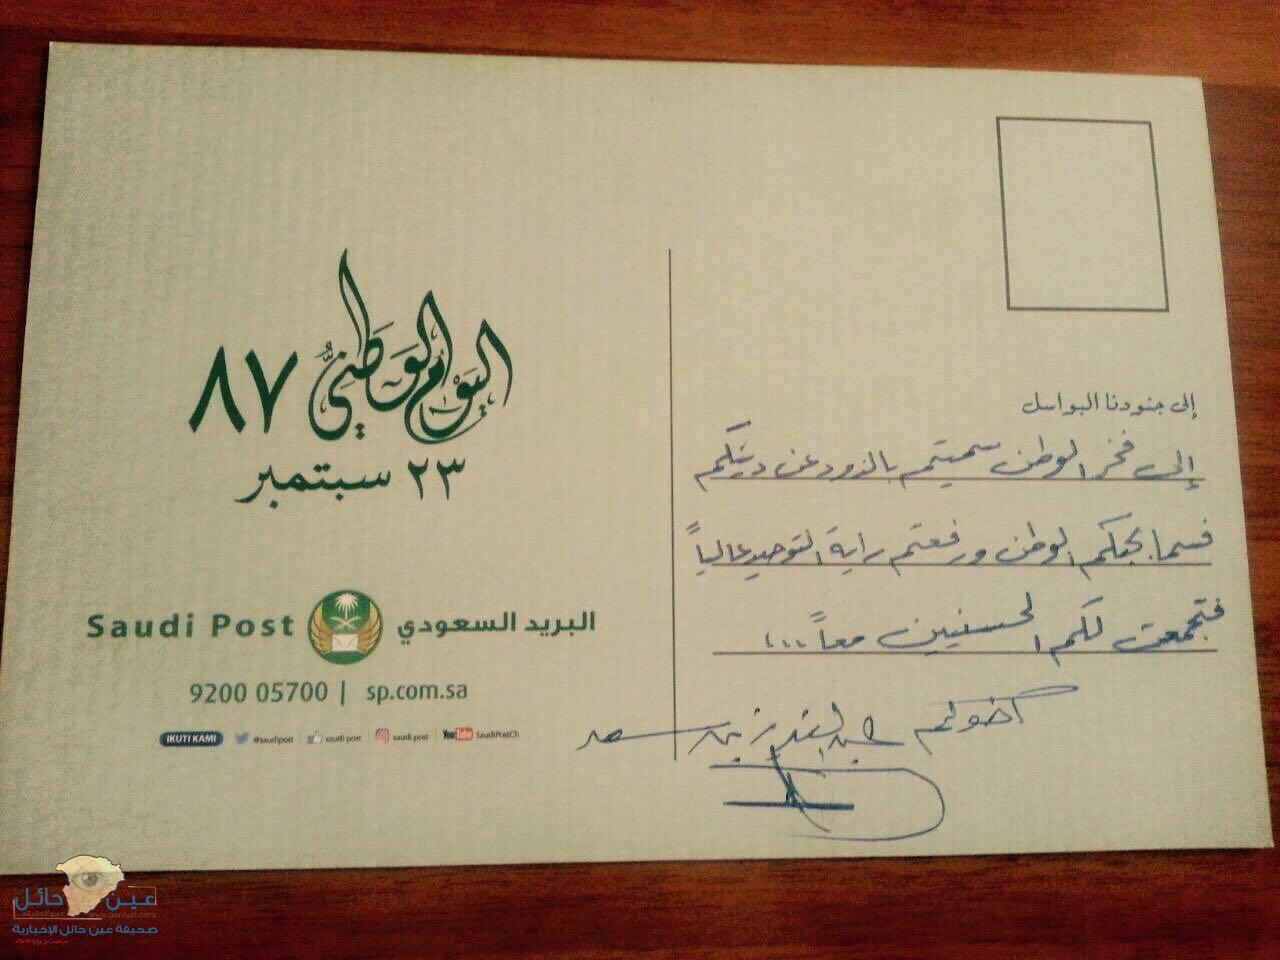 اليوم الوطني ٨٧
٢٣ سبتمبر
Saudi Post البريد السعودي
9200 05700 | sp.com.sa
IKUTI KAMI @saudipost saudi post saudi.post YouTube SaudiPostCh
إلى جنودنا البواسل
إلى فخر الوطن سميتم بالزود عن دينكم
فسما بحبكم الوطن ورفعتم راية التوحيد عالياً
فتجمعت لكم الحسنيين معاً ....
أخوكم عبدالعزيز بن سعد
عين حائل
www.aenhail.com
صحيفة عين حائل الإخبارية